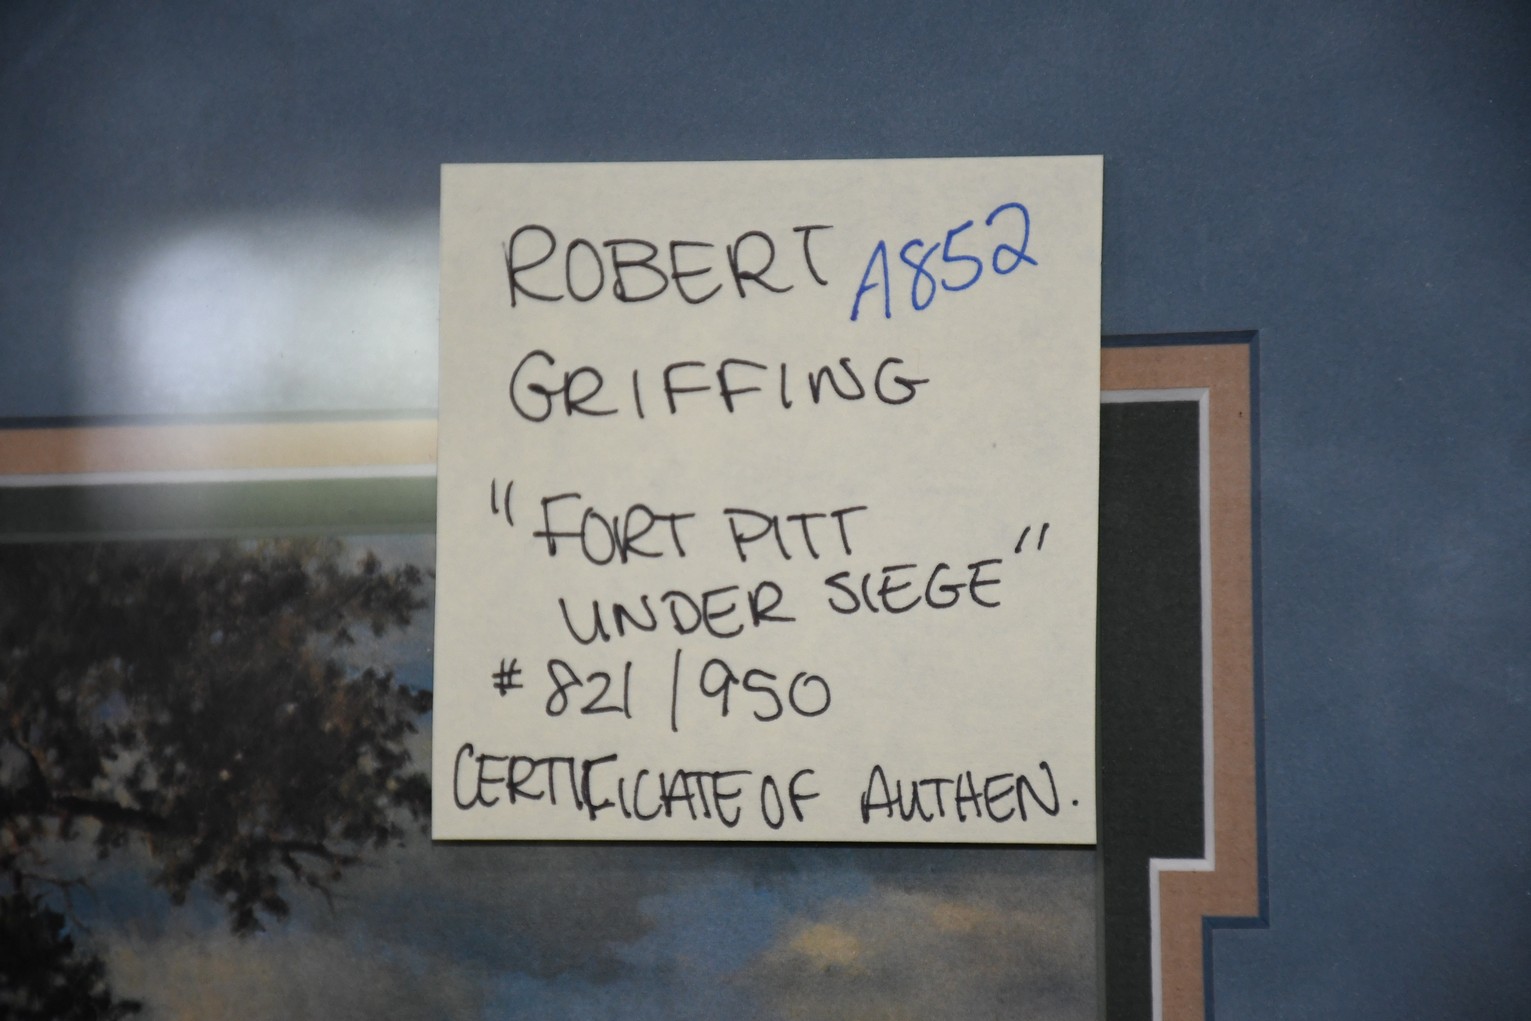 ROBERT A852
GRIFFING
"FORT PITT
UNDER SIEGE"
# 821/950
CERTIFICATE OF AUTHEN.